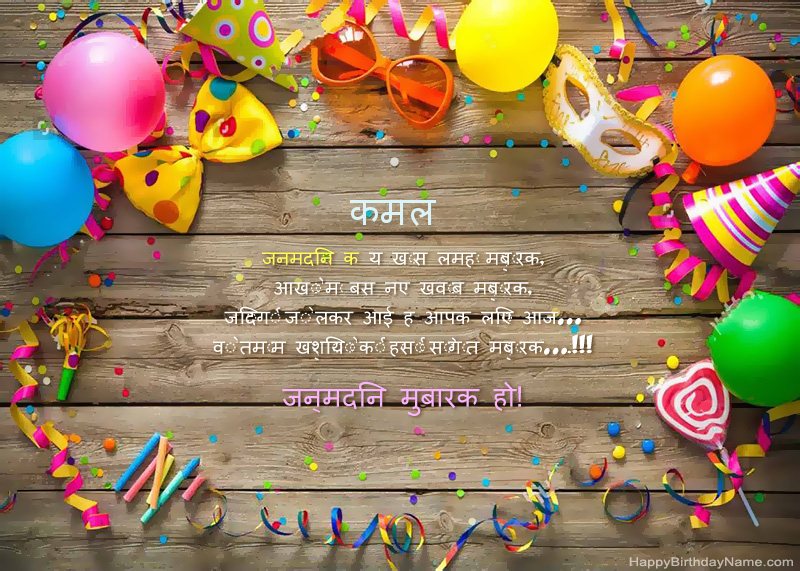 कमल
जनमदनि क य खास लमह मबारक,
आखो म बस नए खवाब मबारक,
जदिगी जो लेकर आई ह आपक लिए आज...
वो तमाम खशियो की हसी सोगात मबारक....!!!
जन्मदनि मुबारक हो!
HappyBirthdayName.com